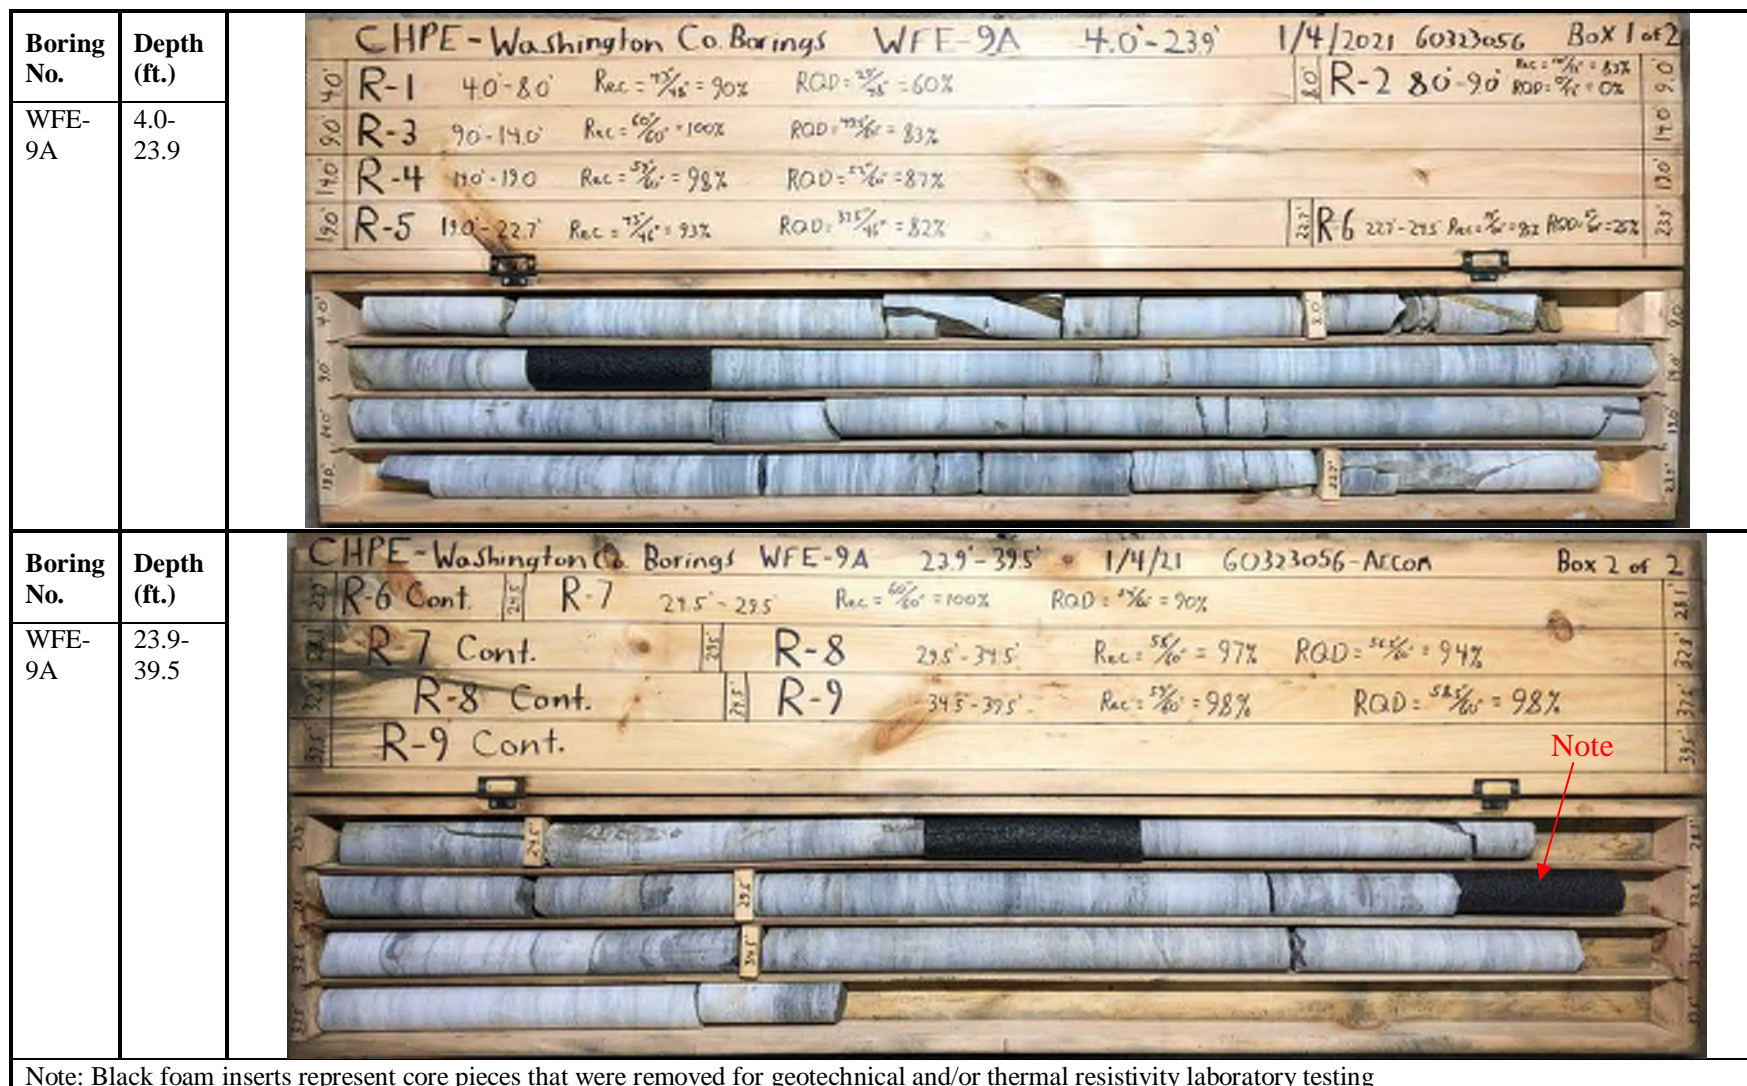 Boring No.
Depth (ft.)
WFE-9A
4.0-23.9
CHPE-Washington Co. Borings WFE-9A 4.0'-23.9' 1/4/2021 60323056 Box 1 of 2
4.0' R-1 4.0'-8.0' Rec = 43"/48" = 90% RQD = 29"/48" = 60% 8.0' R-2 8.0'-9.0' Rec = = 83% RQD = = 0% 9.0'
9.0' R-3 9.0'-14.0' Rec = 60"/60" = 100% RQD = 49.5"/60" = 83% 14.0'
14.0' R-4 14.0'-19.0 Rec = 59"/60" = 98% RQD = = 87% 19.0'
19.0' R-5 19.0'-22.7' Rec = 43"/46" = 93% RQD = 37.5"/46" = 82% 22.7' R-6 22.7'-24.5' Rec = RQD = = 25% 23.9'
4.0' 8.0' 9.0'
9.0' 14.0'
14.0' 19.0'
19.0' 22.7' 23.9'
Boring No.
Depth (ft.)
WFE-9A
23.9-39.5
CHPE-Washington Co. Borings WFE-9A 23.9'-39.5' 1/4/21 60323056-AECOM Box 2 of 2
23.9' R-6 Cont. 24.5' R-7 24.5'-29.5' Rec = 60"/60" = 100% RQD = 54"/60" = 90% 28.1'
28.1' R-7 Cont. 29.5' R-8 29.5'-34.5' Rec = 58"/60" = 97% RQD = 56.5"/60" = 94% 32.8'
32.8' R-8 Cont. 34.5' R-9 34.5'-39.5' Rec = 59"/60" = 98% RQD = 58.5"/60" = 98% 37.5'
37.5' R-9 Cont. 39.5'
Note
23.9' 24.5' 28.1'
28.1' 29.5' 32.8'
32.8' 34.5' 37.5'
37.5' 39.5'
Note: Black foam inserts represent core pieces that were removed for geotechnical and/or thermal resistivity laboratory testing